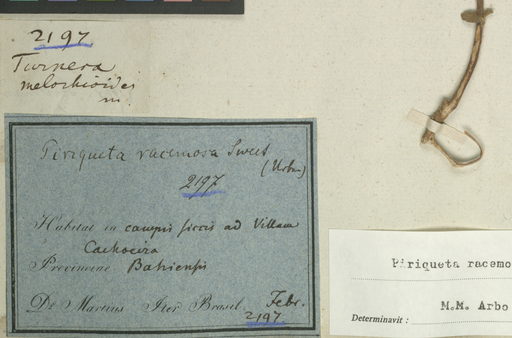 2197
Turnera
melochioides
m.
Piriqueta racemosa Sweet
(Urbn)
2197
Habitat in campis siccis ad Villam
Cachoeira
Provinciae Bahiensis
Dr Martius Iter Brasil. Febr.
2197
Piriqueta racemo
M.M. Arbo
Determinavit :